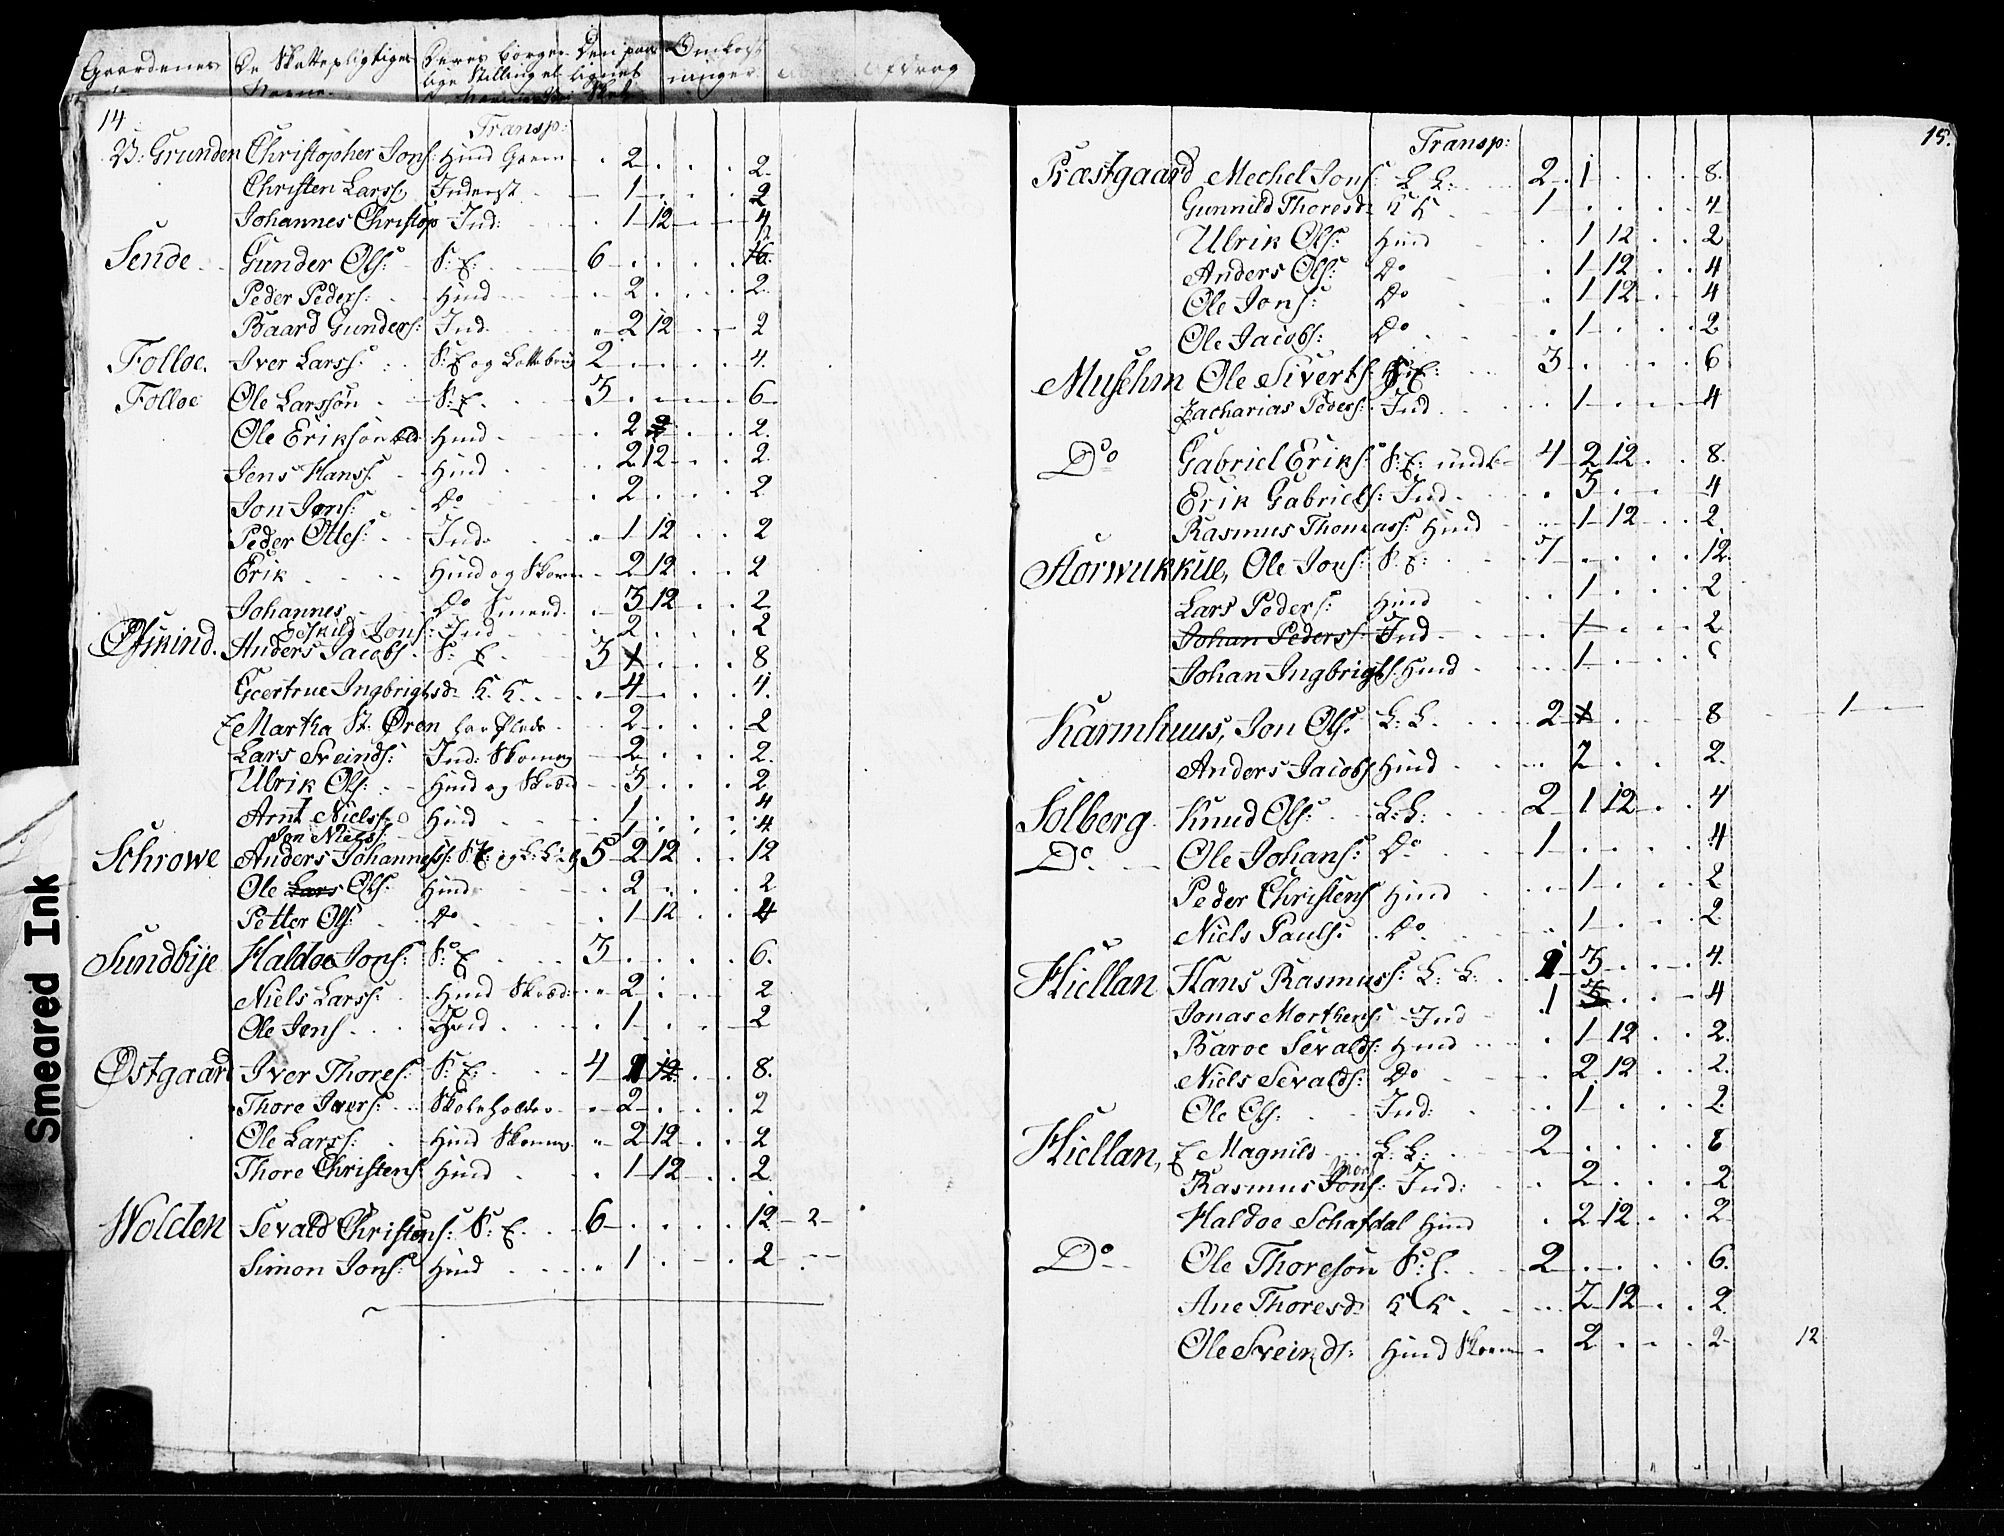 Gaardenes De Skattepligtiges Deres borger Den paa Omkost
Navne lige Stilling el lignet ninger Afdrag
Skat
14.
Transp:
V: Grunden Christopher Jons: Hind 2 2
Christen Larss: Inderst 1 2
Johannes Christop Ind: 1 12 4
Sende Gunder Ols: S: E: 6 16
Peder Peders: Hind 2 2
Baard Gunders: Ind 2 12 2
Folloe. Iver Larss: S: E og 2 4
Folloe Ole Larssøn S: E 3 6
Ole Erikson Hind 2 2 2
Jens Hanss: Hind 2 12 2
Jon Jons: Do 2 2
Peder Olles: Ind 1 12 2
Erik Hind og 2 12 2
Johannes Do Smed 3 12 2
Eskild Jons: Ind 2 2
Øfskind. Anders Jacobs. S: E. 3 1 8
Geertrue Ingbrigtsd. K. K. 4 4
E Martha St. Øren 2 2
Lars Sveinds: Ind: Skomag 2 2
Ulrik Ols: Hind og 3 2
Arnt Nielss Hind 1 4
Jon Nielss: 1 4
Schrowe Anders Johanness: S: E: og L: L: 5 2 12 12
Ole Lars Ols: Hind 2 2
Petter Ols: Do 1 12 4
Sundbye Haldoe Jons: S: E 3 6
Niels Larss: Hind Skræd: 2 2
Ole Jens Ind 1 2
Østgaard Iver Thores: S: E: 4 1 12 8
Thore Ivers: Skoleholder 2 2
Ole Larss: Hind Skomag 2 12 2
Thore Christens: Hind 1 12 2
Wolden Sevald Christens: S: E. 6 12 2
Simon Jons: Hind 1 2
15.
Transp:
Præstgaard Mechel Jons: L L: 2 1 8
Gunnild Thoresd: K K 1 4
Ulrik Ols: Hind 1 12 2
Anders Ols: Do 1 12 4
Ole Jons: Do 1 12 4
Ole Jacobs: Do 1 2
Musehm Ole Siverts: S: E: 3 6
Zacharias Peders: Ind 1 4
Do Gabriel Eriks: S: E: 4 2 12 8
Erik Gabriels: Ind 3 4
Rasmus Thomass: Hind 1 12 2
Storwukkue, Ole Jons: S: E: 7 12
Lars Peders: Hind 1 2
Johan Peders: Ind 1 2
Johan Ingbrigts. Hind 1
Karmhuus, Jon Ols: L: L. 2 1 8 1
Anders Jacobs Hind 2 2
Solberg Knud Ols: L: L: 2 1 12 4
Do Ole Johans: Do 1 4
Peder Christens Hind 1 2
Niels Pauls: Do 1 2
Hiellan Hans Rasmuss: L: L: 1 3 4
Jonas Morthens: Ind 1 3 4
Baroe Sevalds: Hind 1 12 2
Niels Sevalds: Do 2 12 2
Ole Ols: Ind: 1 2
Hiellan, E Magnild L: L: 2 8
Rasmus Jons: Ind: 2 2
Haldoe Schafdal Hind 2 12 2
Do Ole Thoresøn S: E. 2 6
Ane Thoresd: K K 2 12 2
Ole Sveinds: Hind 2 2 12
Smeared Ink